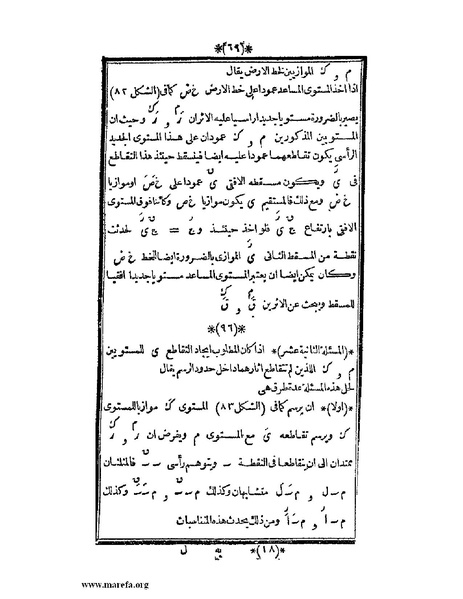 *(٦٩)*
م و ك الموازيين لخط الارض يقال
اذا اخذ المستوى المساعد عموداعلى خط الارض خ ض كمافى (الشكل ٨٢)
يصير بالضرورة مستوياجديدا راسياعليه الاثران م و ك وحيث ان
المستويين المذكورين م و ك عمودان على هذا المستوى الجديد
الرأسى يكون تقاطعهما عموداعليه ايضا فينسقط حينئذ هذا التقاطع
فى ى ويكون مسقطه الافقى ى عمودا على خ ض اوموازيا
خ ض ومع ذلك فالمستقيم ى يكون موازيا خ ض وكائنا فوق المستوى
الافقى بارتفاع ى فلو اخذ حينئذ = لحدثت
نقطة من المسقط الثانى ى الموازى بالضرورة ايضا لخط خ ض
وكان يمكن ايضا ان يعتبر المستوى المساعد مستوياجديدا افقيا
للمسقط ويبحث عن الاثرين و
*(٩٦)*
*(المسئلة الثانية عشر)* اذا كان المطلوب ايجاد التقاطع ى للمستويين
م و ك اللذين لم تتقاطع اثارهما داخل حدود الرسم يقال
لحل هذه المسئلة عدة طرق هى
*(اولا)* ان يرسم كمافى (الشكل ٨٣) المستوى ك موازيا للمستوى
ك ويرسم تقاطعه ى مع المستوى م ويفرض ان م و ك
يمتدان الى ان يتقاطعا فى النقطة ويتوهم رأسى فالمثلثان
و متشابهان وكذلك و وكذلك
و ومن ذلك يحدث هذه المتناسبات
*(١٨)* يه ل
www.marefa.org